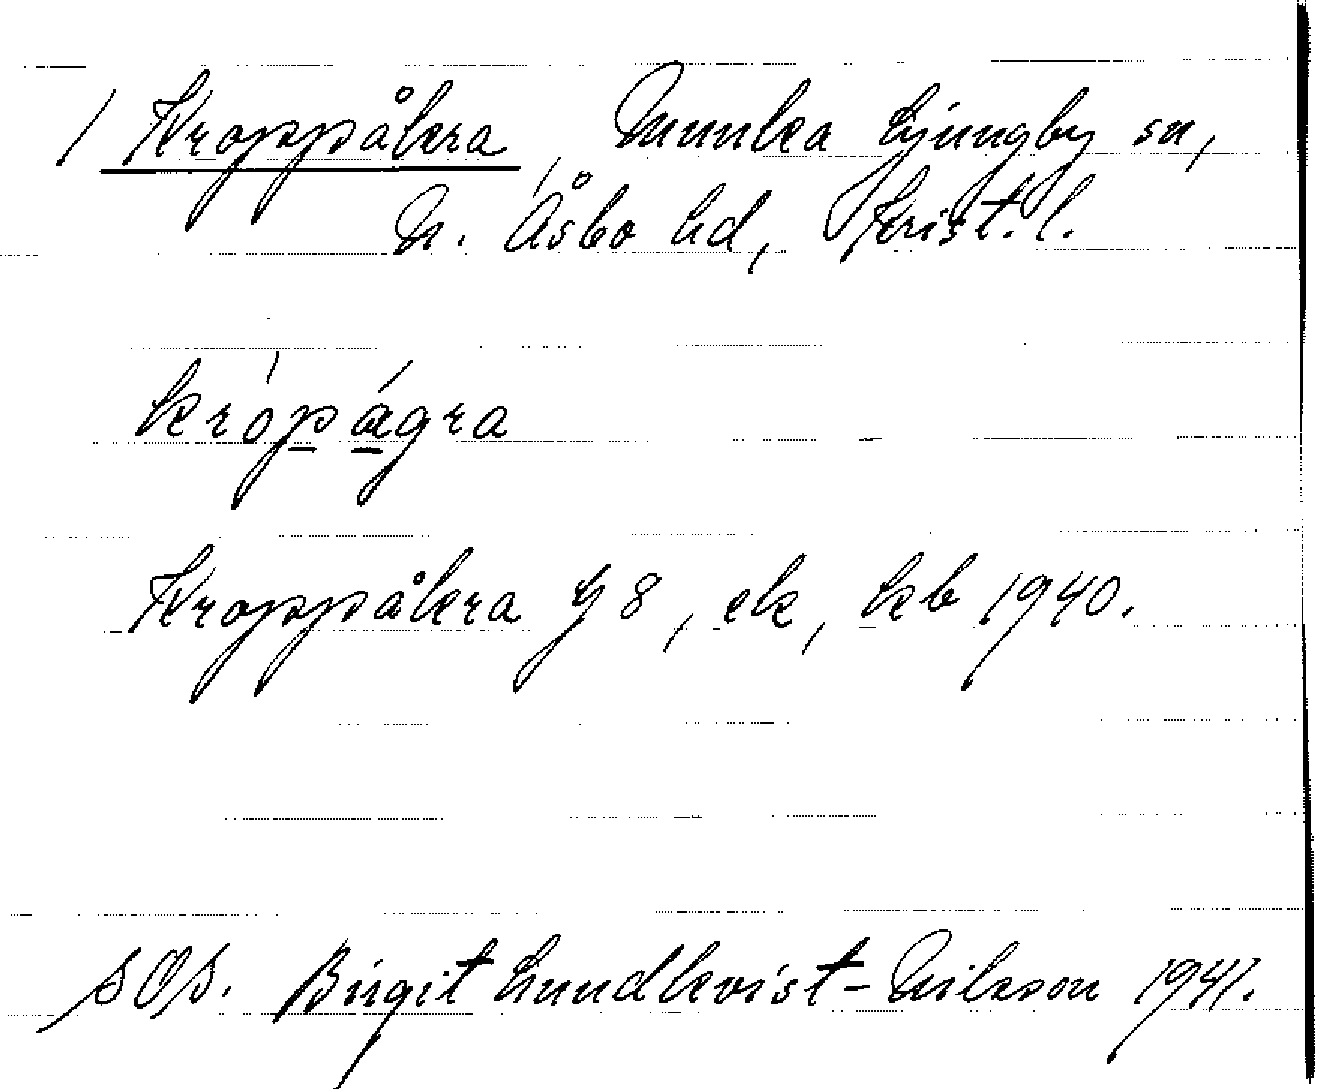 / Kroppåkra, Munka Ljungby sn,
N. Åsbo hd, Krist. l.
krópágra
Kroppåkra G 8, ek, kb 1940.
SOS. Birgit Lundkvist-Nilsson 1941.